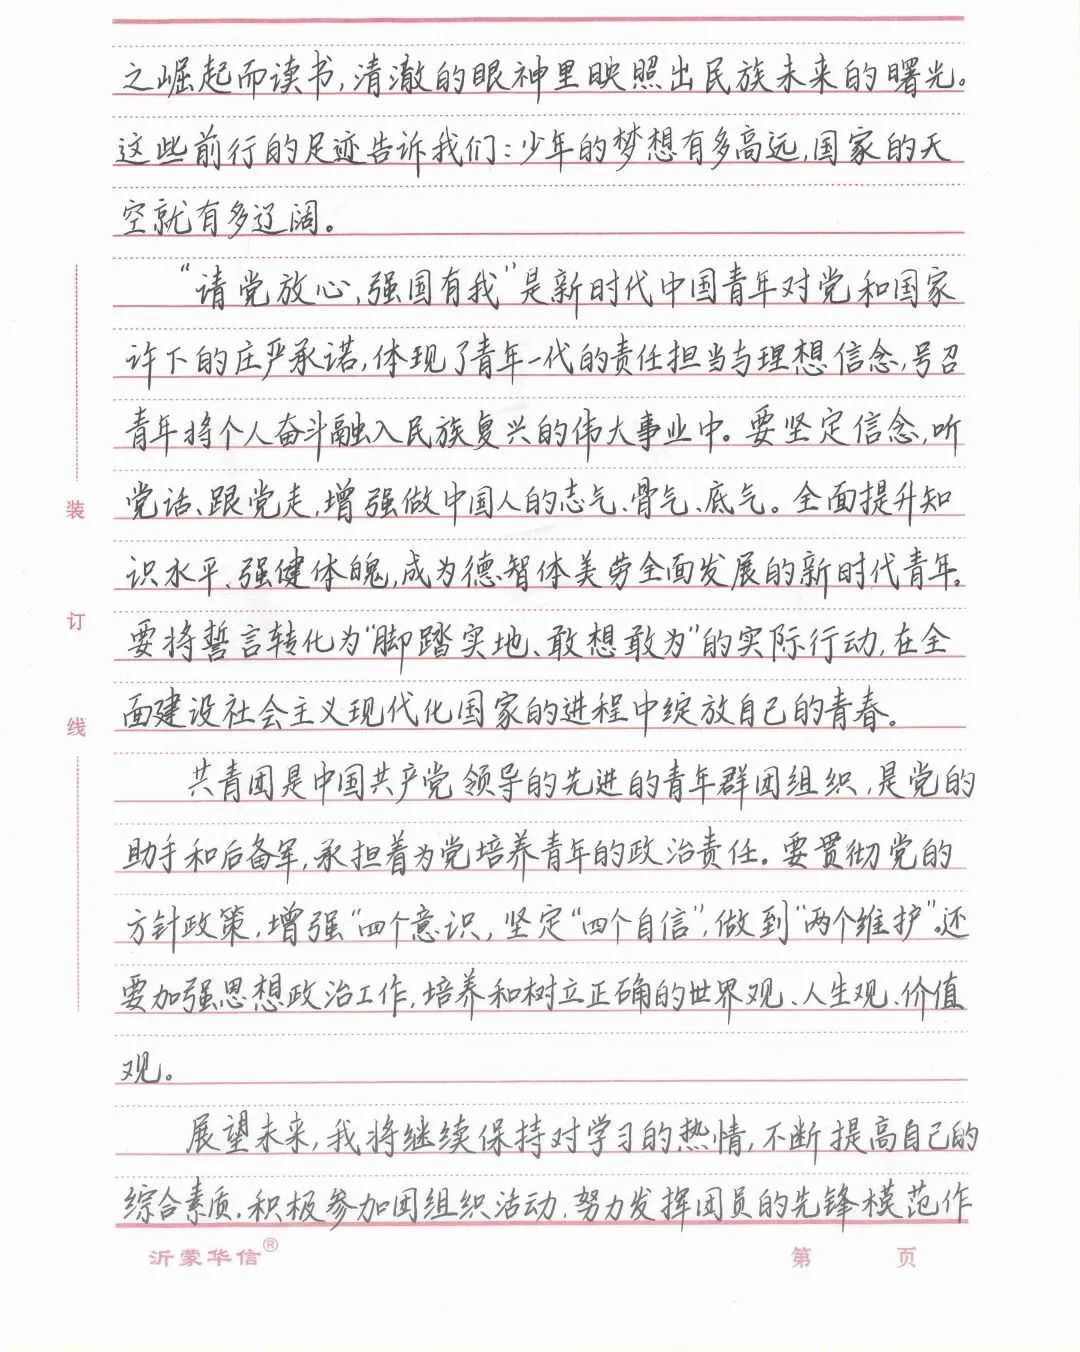 之崛起而读书,清澈的眼神里映照出民族未来的曙光。
这些前行的足迹告诉我们:少年的梦想有多高远,国家的天
空就有多辽阔。
“请党放心,强国有我”是新时代中国青年对党和国家
许下的庄严承诺,体现了青年一代的责任担当与理想信念,号召
青年将个人奋斗融入民族复兴的伟大事业中。要坚定信念,听
党话、跟党走,增强做中国人的志气、骨气、底气。全面提升知
识水平、强健体魄,成为德智体美劳全面发展的新时代青年。
要将誓言转化为“脚踏实地、敢想敢为”的实际行动,在全
面建设社会主义现代化国家的进程中绽放自己的青春。
共青团是中国共产党领导的先进的青年群团组织,是党的
助手和后备军,承担着为党培养青年的政治责任。要贯彻党的
方针政策,增强“四个意识,坚定“四个自信”,做到“两个维护”。还
要加强思想政治工作,培养和树立正确的世界观、人生观、价值
观。
展望未来,我将继续保持对学习的热情,不断提高自己的
综合素质,积极参加团组织活动,努力发挥团员的先锋模范作
装
订
线
沂蒙华信®
第 页